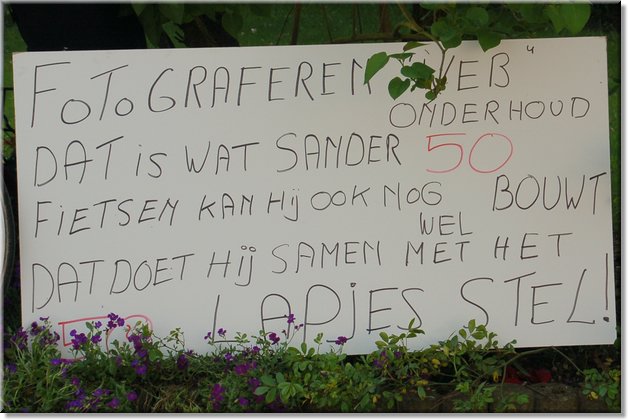 FOTOGRAFEREN "WEB"
ONDERHOUD
DAT is WAT SANDER 50
FiETSEN KAN Hij OOK NOG BOUWT
WEL
DAT DOET Hij SAMEN MET HET
50 LAPjES STEL!